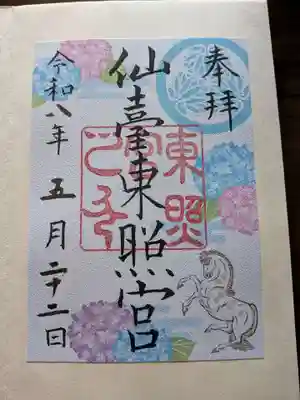 奉拝
仙臺東照宮
令和八年 五月二十二日
東照